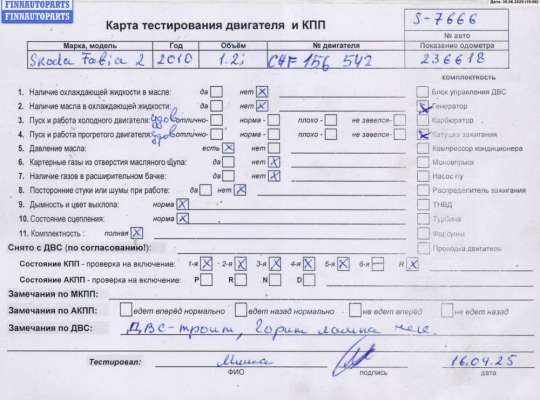 FINNAUTOPARTS
FINNAUTOPARTS
Карта тестирования двигателя и КПП
S-7666
№ авто
Марка, модель Год Объём № двигателя Показание одометра
Skoda Fabia 2 2010 1.2i 236618
комплектность
1. Наличие охлаждающей жидкости в масле: да нет X Блок управления ДВС
2. Наличие масла в охлаждающей жидкости: да нет X Генератор
3. Пуск и работа холодного двигателя: удов отлично- норма - плохо - не завелся- Карбюратор
4. Пуск и работа прогретого двигателя: удов отлично- норма - плохо - не завелся- Катушка зажигания
5. Давление масла: есть X нет Компрессор кондиционера
6. Картерные газы из отверстия масляного щупа: да нет X Моновпрыск
7. Наличие газов в расширительном бачке: да нет X Насос гу
8. Посторонние стуки или шумы при работе: да нет X Распределитель зажигания
9. Дымность и цвет выхлопа: норма X ТНВД
10. Состояние сцепления: норма X Турбина
11. Комплектность: полная X Форсунки
Снято с ДВС (по согласованию!): Проводка двигатель
Состояние КПП - проверка на включение: 1-я X - 2-я X 3-я X 4-я X 5-я X 6-я R X
Состояние АКПП - проверка на включение: P R N D
Замечания по МКПП:
Замечания по АКПП: едет вперёд нормально едет назад нормально не едет вперёд не едет назад
Замечания по ДВС: ДВС-троит, Горит лампа чек.
Тестировал: 16.04.25
ФИО подпись дата